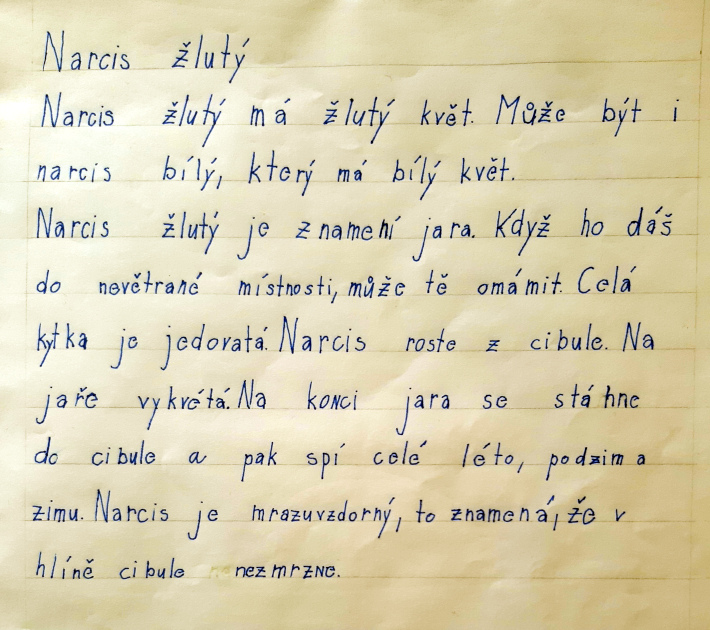 Narcis žlutý
Narcis žlutý má žlutý květ. Může být i
narcis bílý, který má bílý květ.
Narcis žlutý je znamení jara. Když ho dáš
do nevětrané místnosti, může tě omámit. Celá
kytka je jedovatá. Narcis roste z cibule. Na
jaře vykvétá. Na konci jara se stáhne
do cibule a pak spí celé léto, podzim a
zimu. Narcis je mrazuvzdorný, to znamená, že v
hlíně cibule nezmrzne.